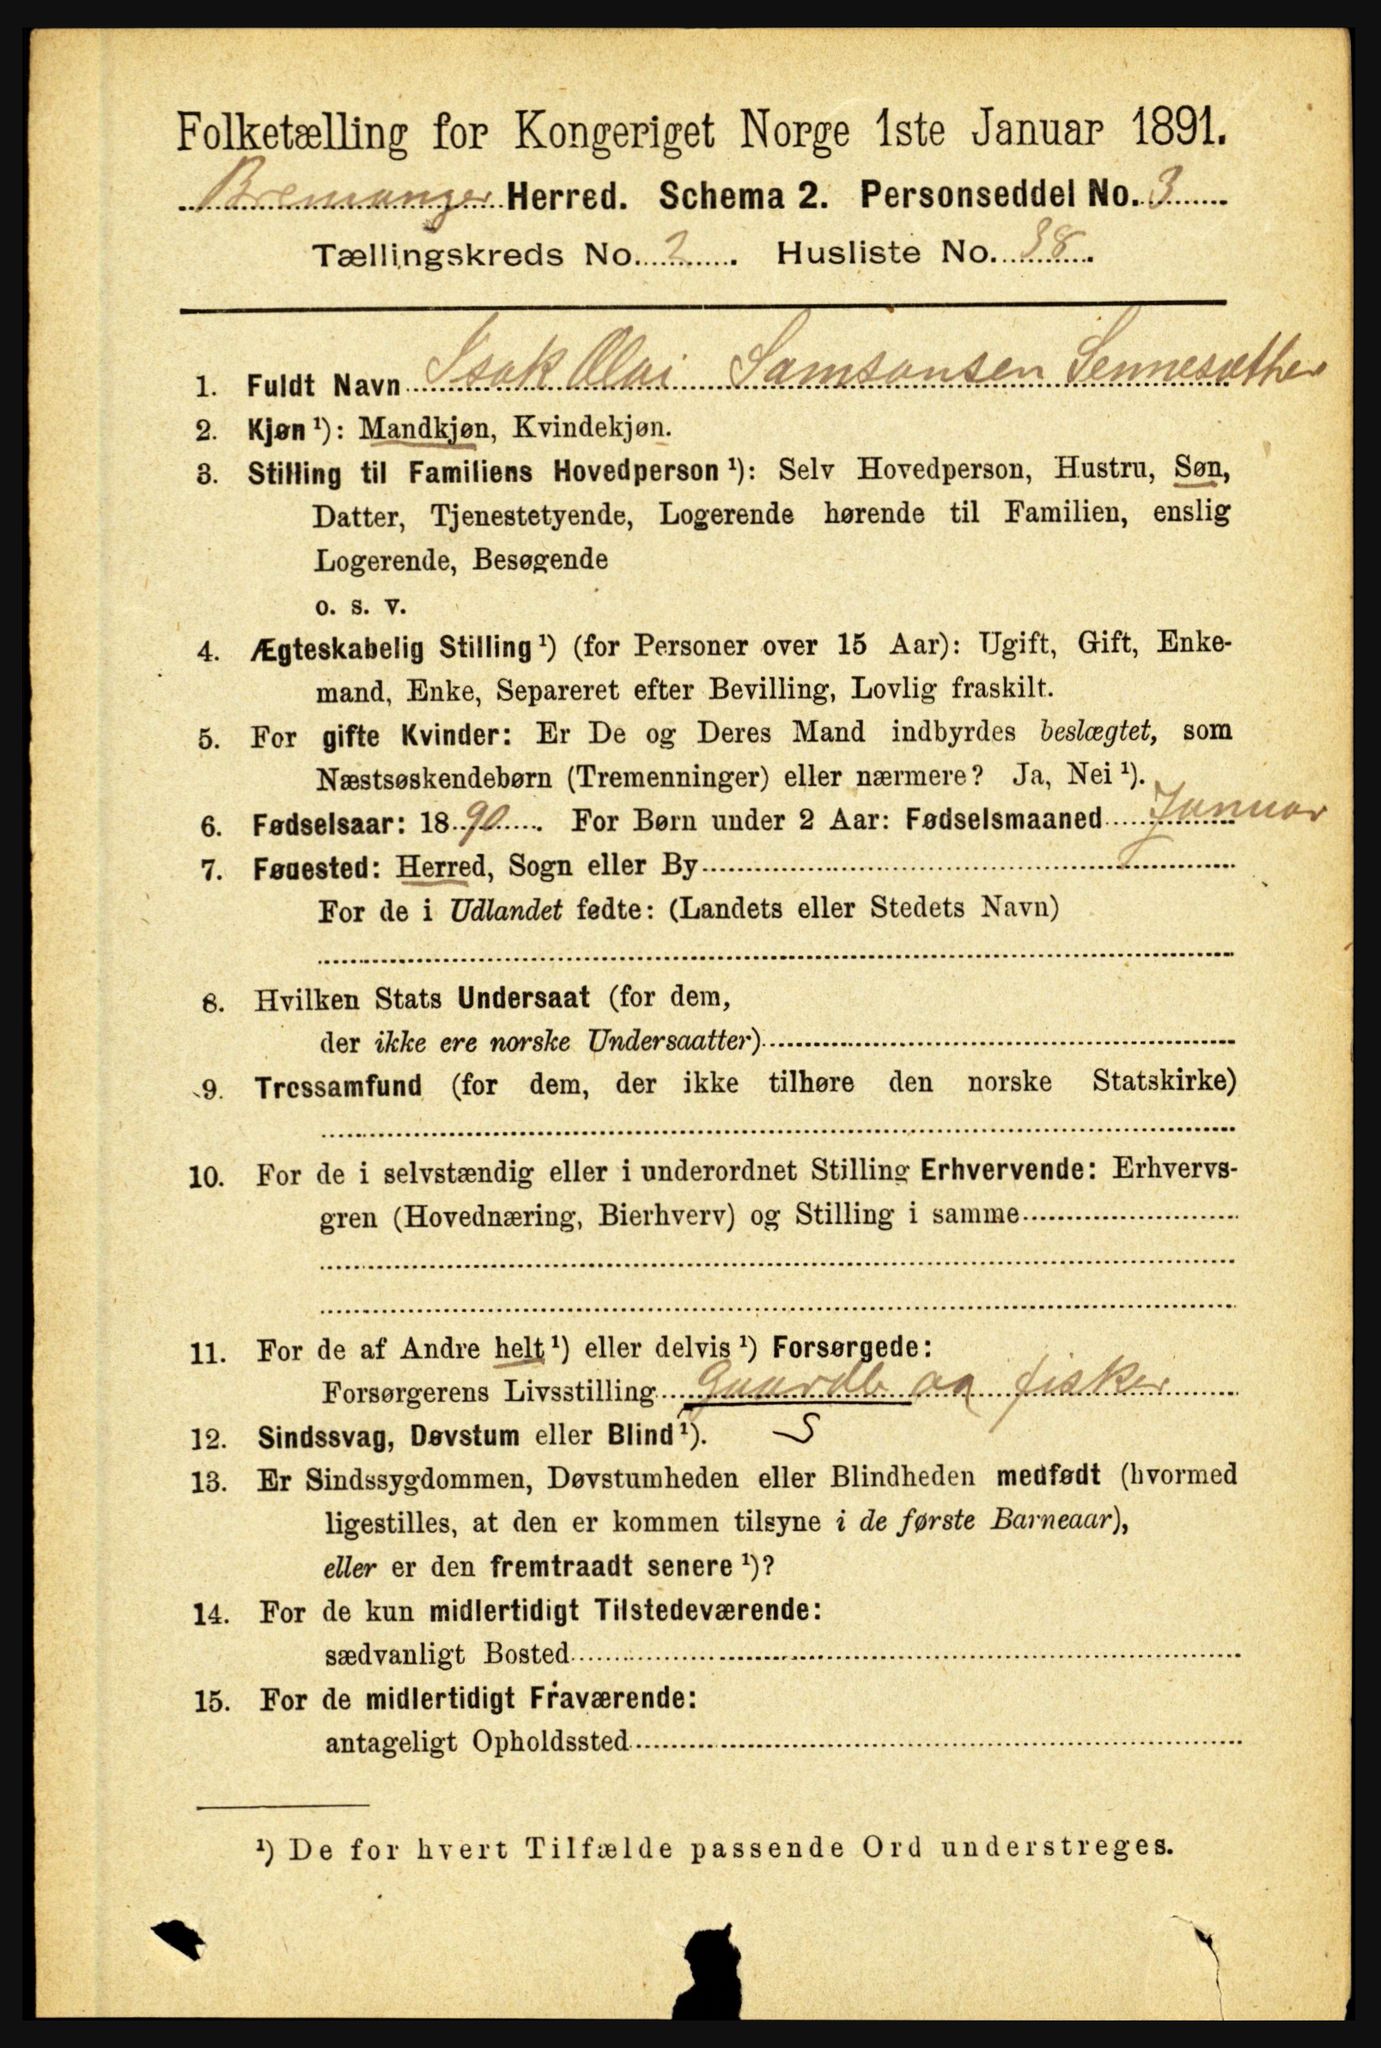 Folketælling for Kongeriget Norge 1ste Januar 1891.
Bremanger Herred. Schema 2. Personseddel No. 3
Tællingskreds No. 2. Husliste No. 38.
1. Fuldt Navn Isak Olai Samsonsen Sennesæther
2. Kjøn ¹): Mandkjøn, Kvindekjøn.
3. Stilling til Familiens Hovedperson ¹): Selv Hovedperson, Hustru, Søn,
Datter, Tjenestetyende, Logerende hørende til Familien, enslig
Logerende, Besøgende
o. s. v.
4. Ægteskabelig Stilling ¹) (for Personer over 15 Aar): Ugift, Gift, Enke-
mand, Enke, Separeret efter Bevilling, Lovlig fraskilt.
5. For gifte Kvinder: Er De og Deres Mand indbyrdes beslægtet, som
Næstsøskendebørn (Tremenninger) eller nærmere? Ja, Nei ¹).
6. Fødselsaar: 1890. For Børn under 2 Aar: Fødselsmaaned Januar
7. Fødested: Herred, Sogn eller By
For de i Udlandet fødte: (Landets eller Stedets Navn)
8. Hvilken Stats Undersaat (for dem,
der ikke ere norske Undersaatter)
9. Trossamfund (for dem, der ikke tilhøre den norske Statskirke)
10. For de i selvstændig eller i underordnet Stilling Erhvervende: Erhvervs-
gren (Hovednæring, Bierhverv) og Stilling i samme
11. For de af Andre helt ¹) eller delvis ¹) Forsørgede:
Forsørgerens Livsstilling Gaardb og fisker
12. Sindssvag, Døvstum eller Blind ¹). S
13. Er Sindssygdommen, Døvstumheden eller Blindheden medfødt (hvormed
ligestilles, at den er kommen tilsyne i de første Barneaar),
eller er den fremtraadt senere ¹)?
14. For de kun midlertidigt Tilstedeværende:
sædvanligt Bosted
15. For de midlertidigt Fraværende:
antageligt Opholdssted
¹) De for hvert Tilfælde passende Ord understreges.